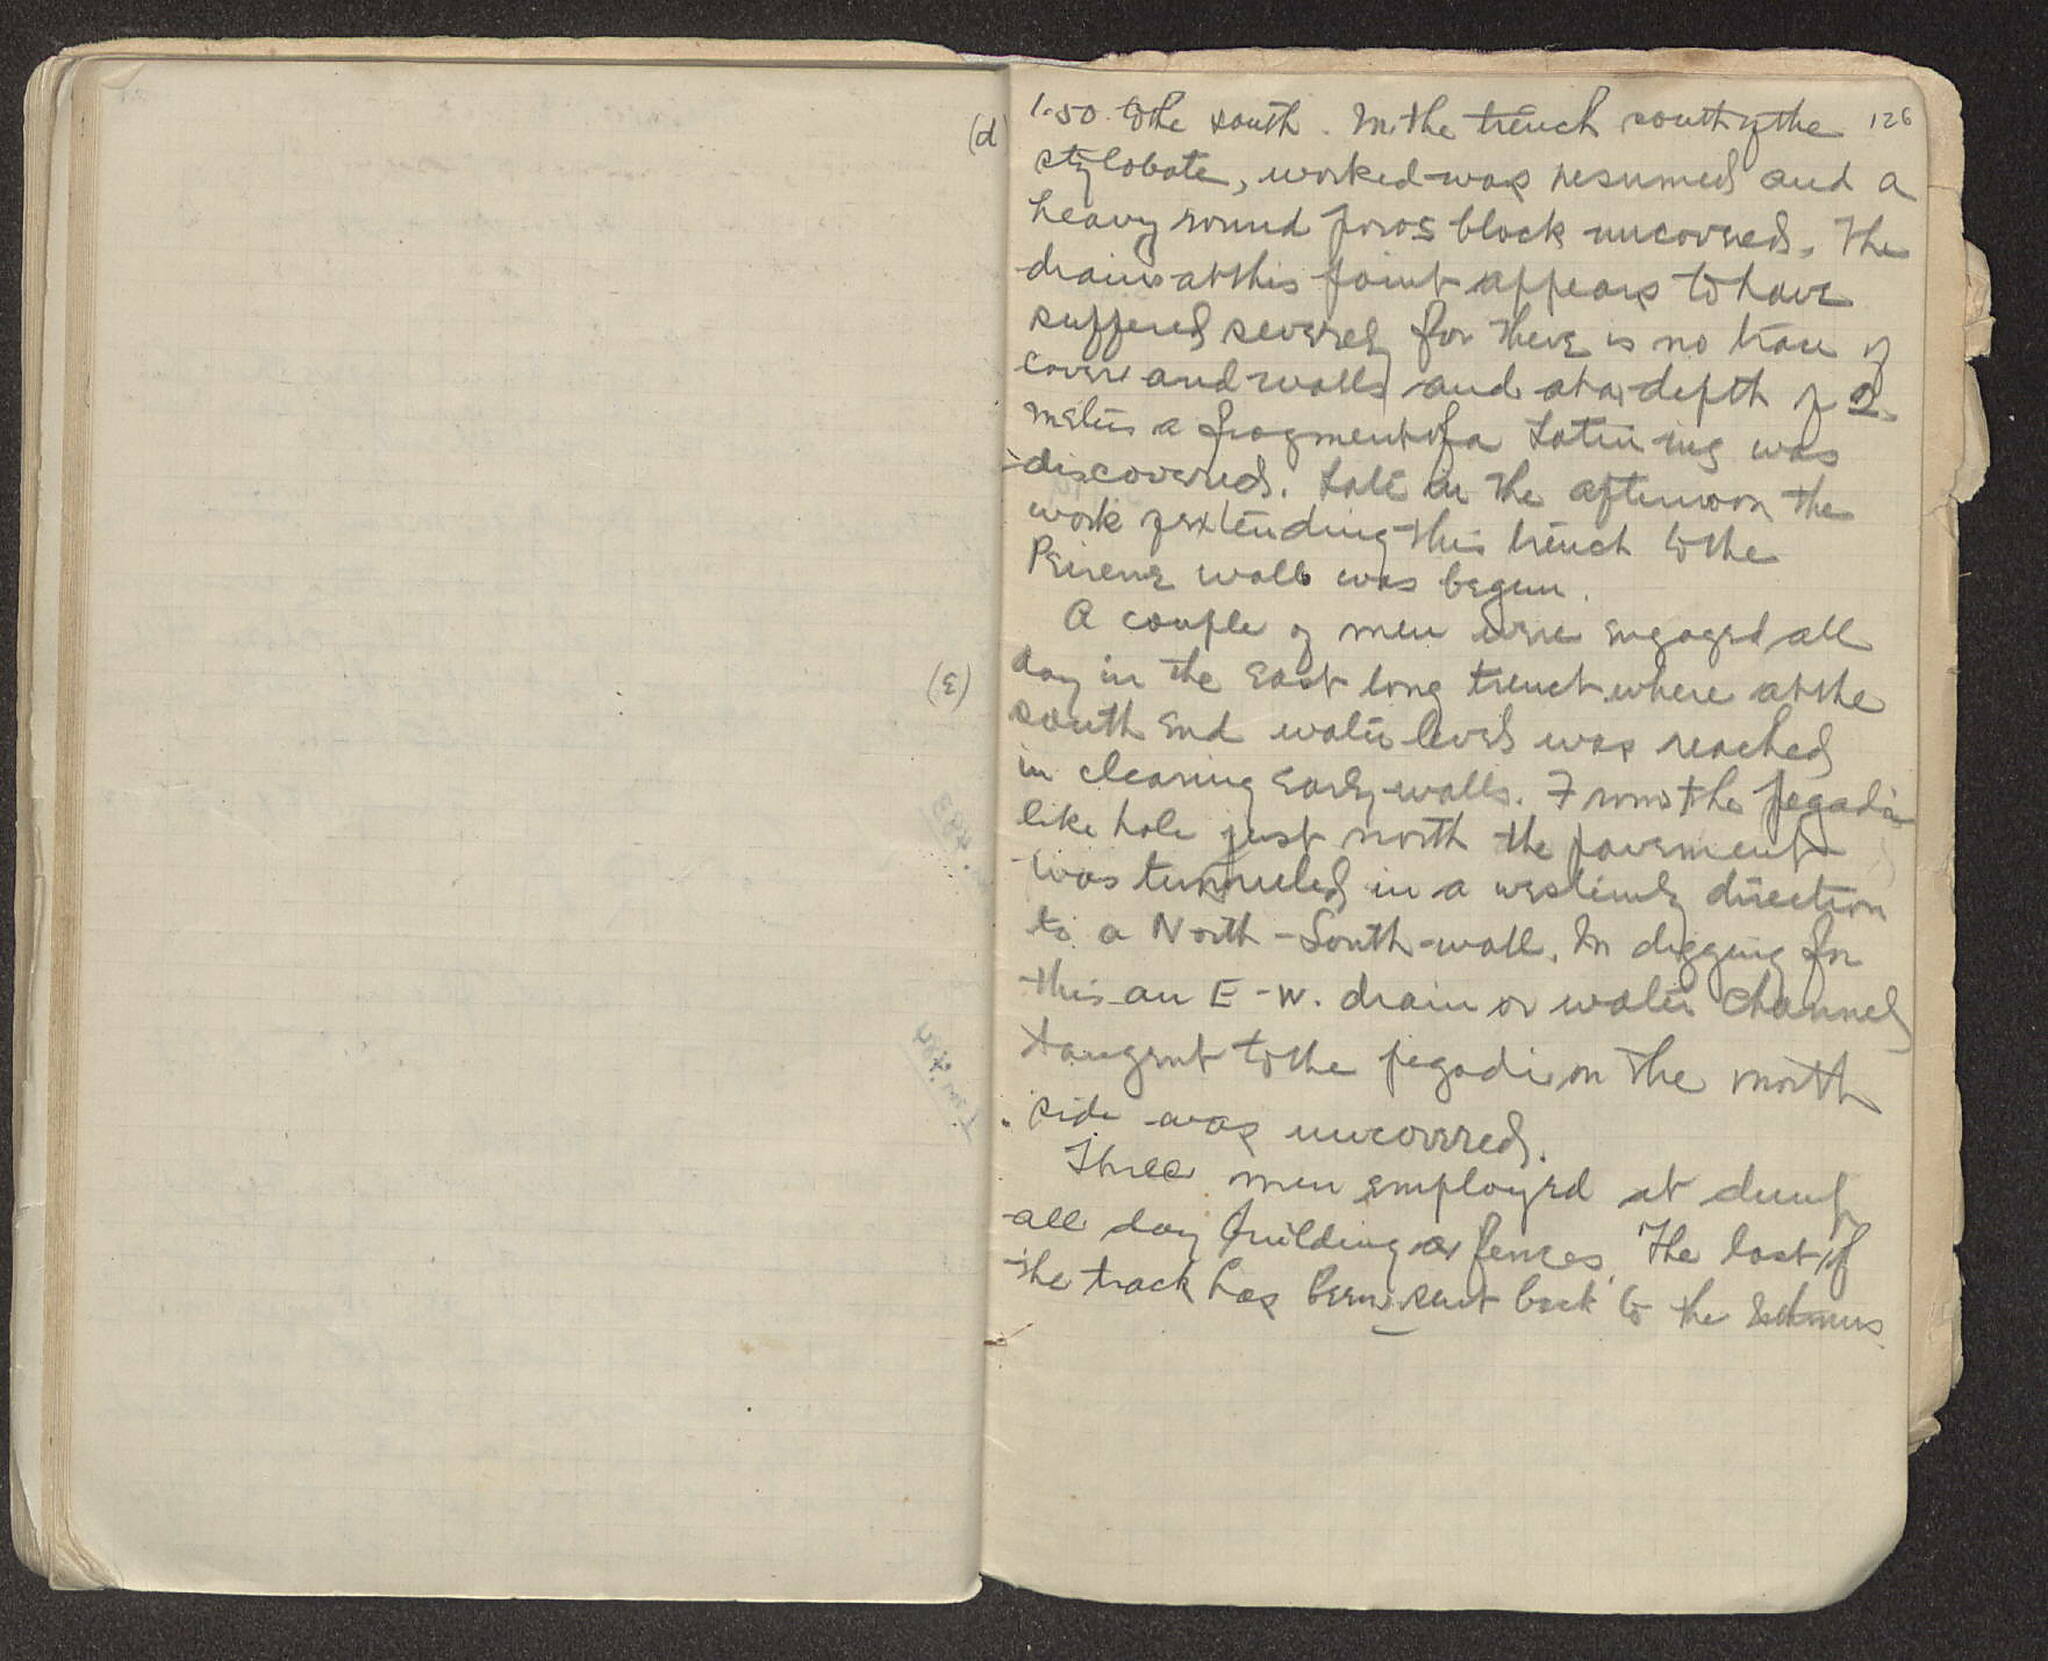 126
(d) 1.50 to the south. In the trench south of the
stylobate, worked was resumed and a
heavy round poros block uncovered. The
drain at this point appears to have
suffered severely for there is no trace of
cover and walls and at a depth of 2.
meters a fragment of a Latin ins was
discovered. Late in the afternoon the
work of extending this trench to the
Peirene wall was begun.
A couple of men were engaged all
(E) day in the east long trench where at the
south end water level was reached
in clearing early walls. From the pegadi
like hole just north the pavement
was tunneled in a westerly direction
to a North-South wall. In digging for
this an E-W. drain or water channel
tangent to the pegadi on the north
side was uncovered.
Three men employed at dump
all day building fences. The last of
the track has been sent back to the Isthmus